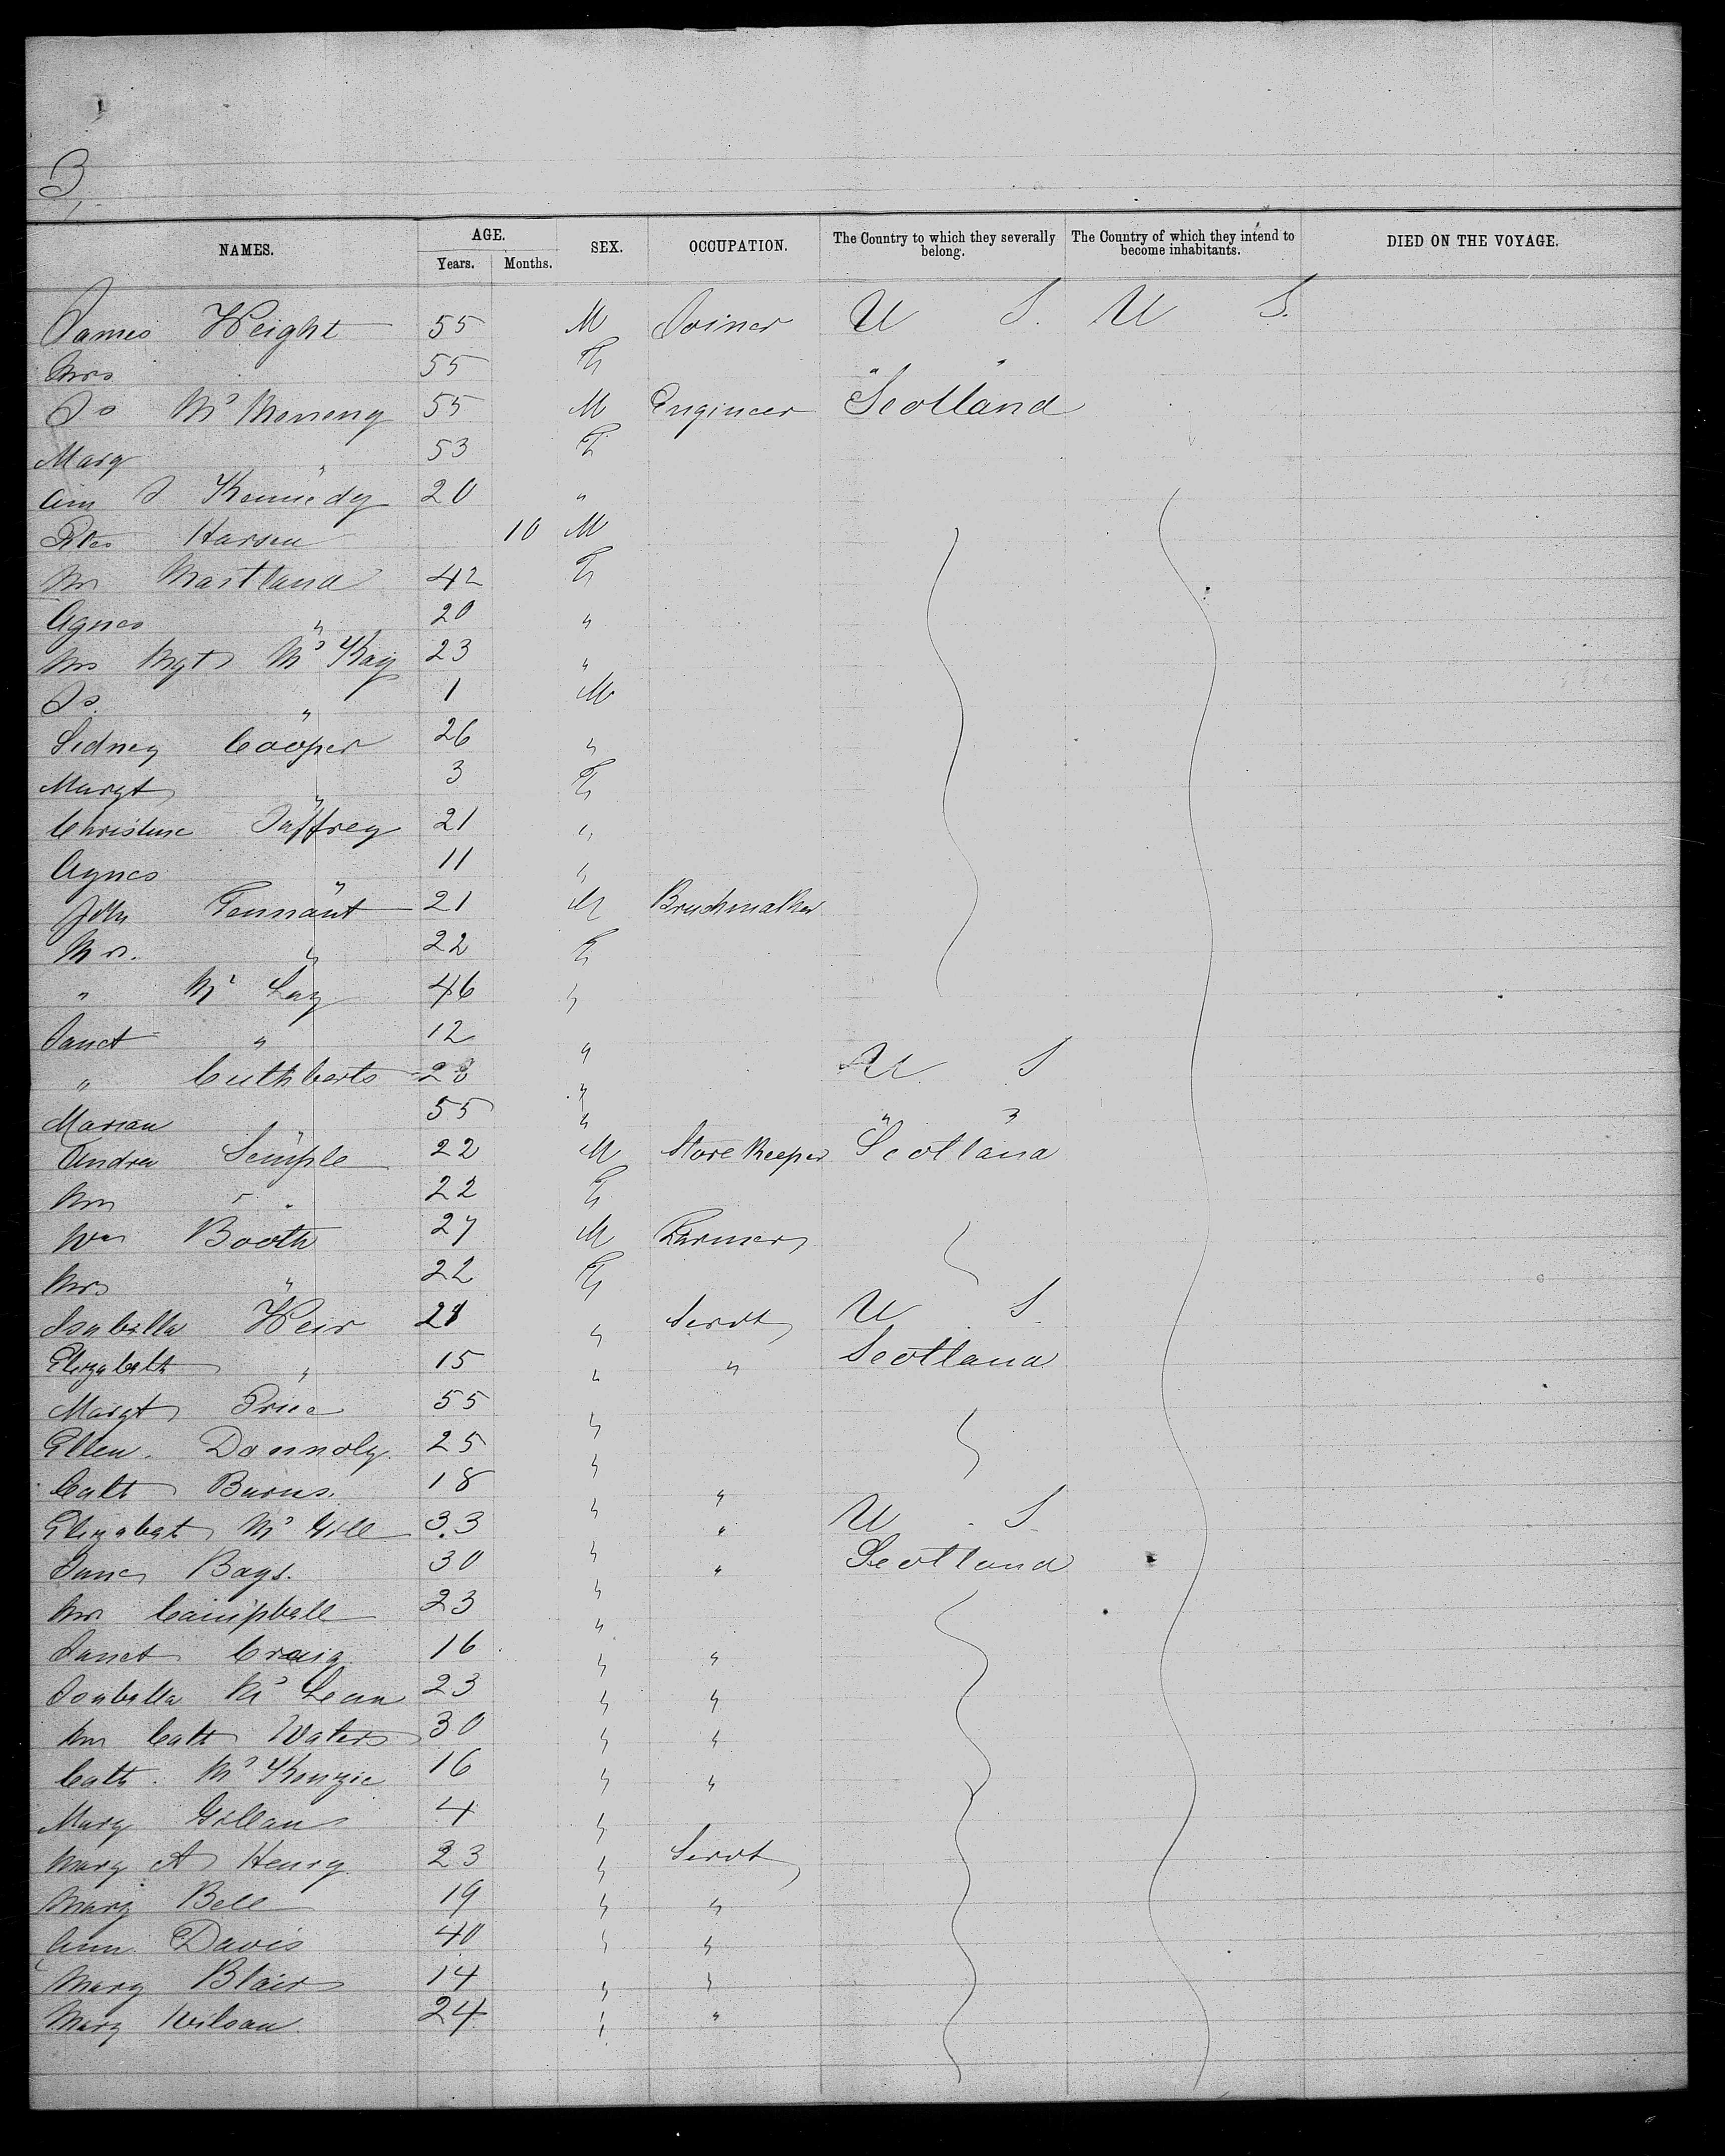 3,
NAMES. AGE. SEX. OCCUPATION. The Country to which they severally belong. The Country of which they intend to become inhabitants. DIED ON THE VOYAGE.
Years. Months.
James Weight 55 M Joiner U S. U S.
Mrs 55 F " "
Jo Mc Meneny 55 M Engineer Scotland
Mary " 53 F
Ann J Kennedy 20 "
Peter Harson 10 M
Mrs Maitland 42 F
Agnes " 20 "
Mrs Mgt Mc Kay 23 "
Jo. " 1 M
Sidney Cooper 26 "
Margt " 3 F
Christine Jaffrey 21 "
Agnes " 11 "
John Tennant 21 M Brushmaker
Mrs. " 22 F
" Mc Lay 46 "
Janet " 12 "
" Cuthberts 28 " U S
Marian " 55 " " "
Andrew Semple 22 M Store Keeper Scotland
Mrs " 22 F
Wm Booth 27 M Farmer
Mrs " 22 F
Isabella Weir 21 " Servt U S.
Elizabeth " 15 " " Scotland
Margt Price 55 "
Ellen. Donnoly. 25 "
Cath Burns. 18 " "
Elizabet Mc Gill 33 " " U S.
Jane Bays. 30 " " Scotland
Mrs Campbell 23 "
Janet Craig. 16 " "
Isabella Mc Lean 23 " "
Mrs Cath Waters 30 " "
Cath. Mc Kenzie 16 " "
Mary Gillan 4 "
Mary A Henry. 23 " Servt
Mary Bell 19 " "
Ann Davis 40 " "
Mary Blair 14 " "
Mary Wilson. 24 " "